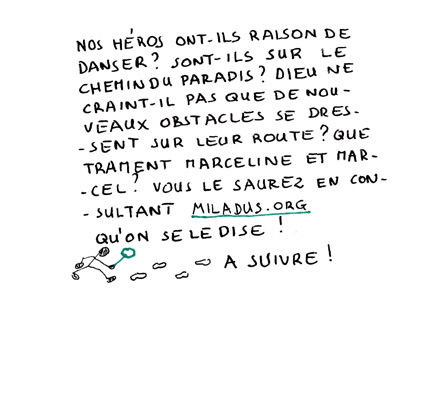 NOS HÉROS ONT-ILS RAISON DE
DANSER? SONT-ILS SUR LE
CHEMIN DU PARADIS? DIEU NE
CRAINT-IL PAS QUE DE NOU-
VEAUX OBSTACLES SE DRES-
-SENT SUR LEUR ROUTE? QUE
TRAMENT MARCELINE ET MAR-
-CEL? VOUS LE SAUREZ EN CON-
-SULTANT MILADUS.ORG
QU'ON SE LE DISE !
A SUIVRE !